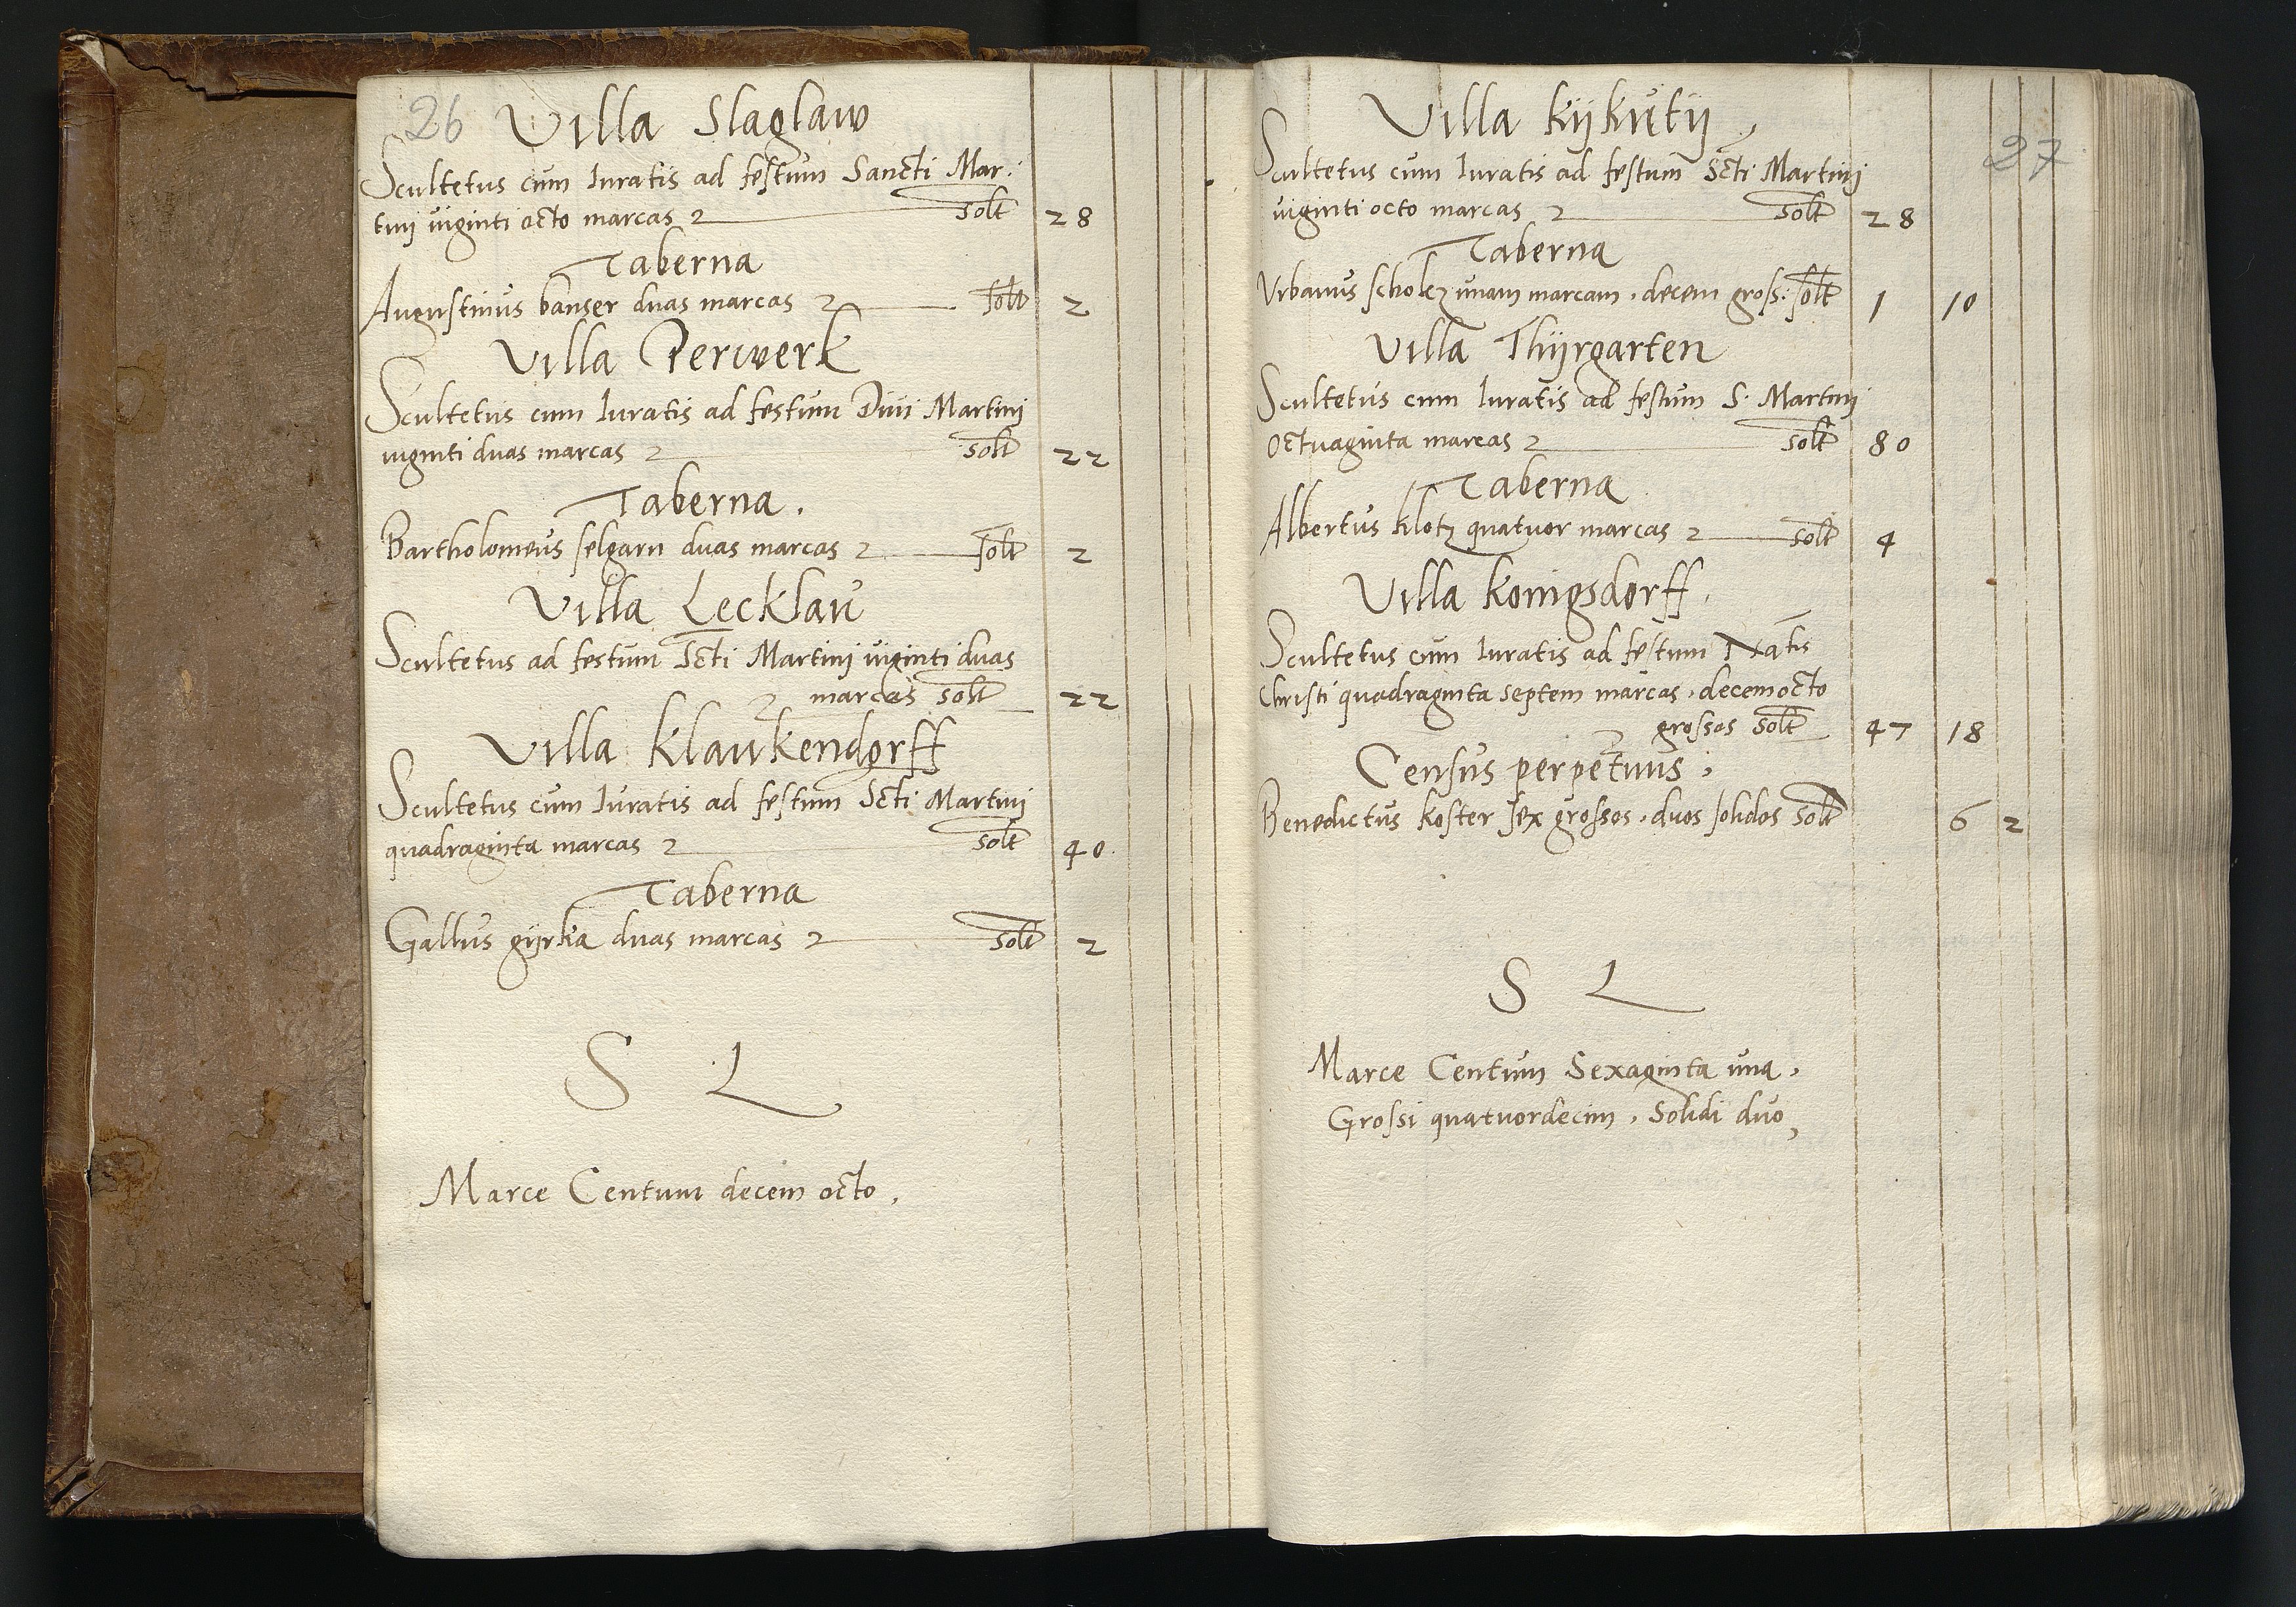 26 Villa Slaglaw
Scultetus cum Iuratis ad festum Sancti Mar:
tinj viginti octo marcas solt 28
Taberna
Augustinus banser duas marcas solt 2
Villa Perwerk
Scultetus cum Iuratis ad festum Diui Martinj
viginti duas marcas solt 22
Taberna.
Bartholomeus selgarn duas marcas solt 2
Villa Lecklau
Scultetus ad festum Scti Martinj viginti duas
marcas solt 22
Villa Klaukendorff
Scultetus cum Iuratis ad festum Scti Martinj
quadraginta marcas solt 40
Taberna
Gallus gijrka duas marcas solt 2
S L
Marce Centum decem octo.
27
Villa kijkutij
Scultetus cum Iuratis ad festum Scti Martinj
viginti octo marcas solt 28
Taberna
Vrbanus scholcz unam marcam. decem gross: solt 1 10
Villa Thijrgarten
Scultetus cum Iuratis ad festum S. Martinj
Octuaginta marcas solt 80
Taberna
Albertus klotz quatuor marcas solt 4
Villa konigsdorff.
Scultetus cum Iuratis ad festum Natis
Christi quadraginta septem marcas. decem octo
grossos solt 47 18
Census perpetuus.
Benedictus koster sex grossos. duos solidos solt 6 2
S L
Marce Centum Sexaginta una.
Grossi quatuordecim. Solidi duo,